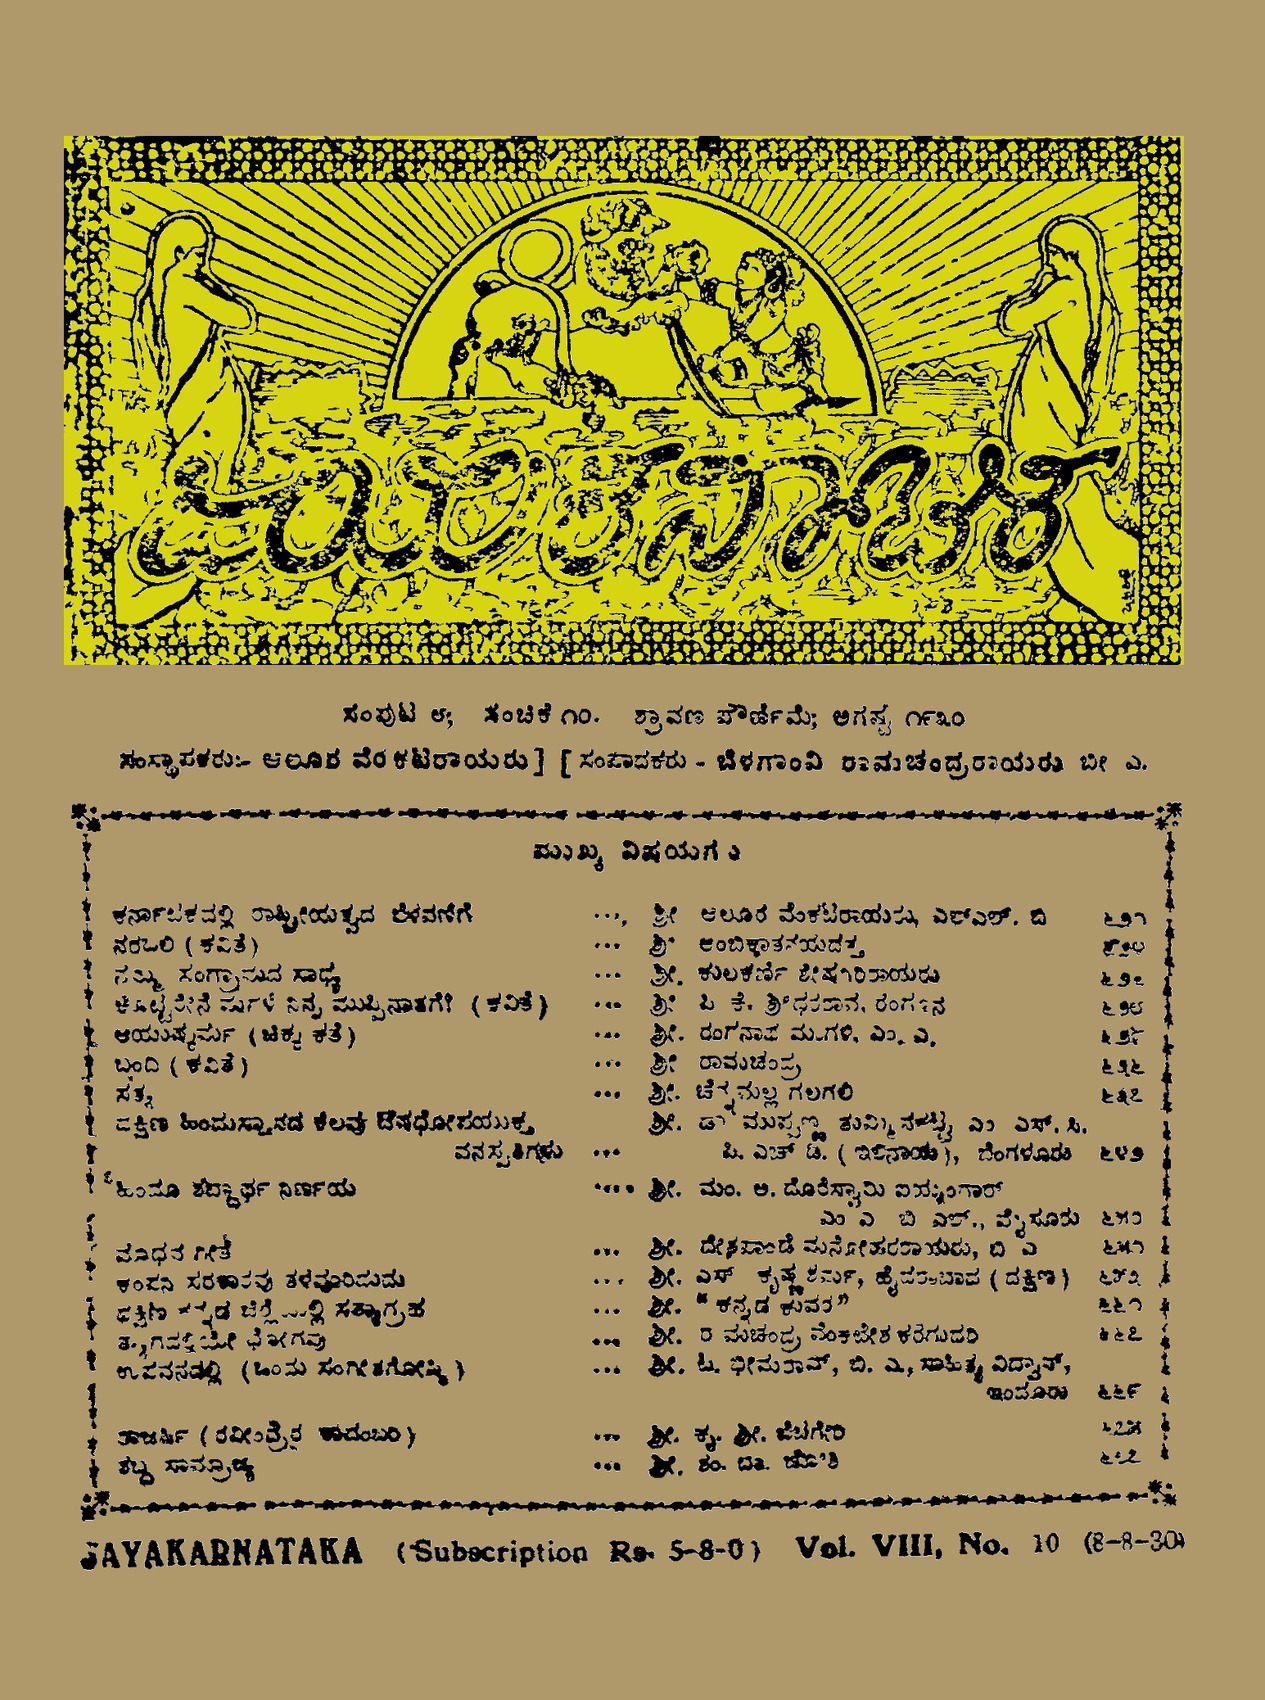 ಜಯಕರ್ನಾಟಕ
ಸಂಪುಟ ೮; ಸಂಚಿಕೆ ೧೦. ಶ್ರಾವಣ ಪೌರ್ಣಿಮೆ; ಆಗಸ್ಟ ೧೯೩೦
ಸಂಸ್ಥಾಪಕರು:- ಆಲೂರ ವೆಂಕಟರಾಯರು] [ಸಂಪಾದಕರು - ಬೆಳಗಾಂವಿ ರಾಮಚಂದ್ರರಾಯರು ಬೀ ಎ.
ಮುಖ್ಯ ವಿಷಯಗಳು
ಕರ್ನಾಟಕದಲ್ಲಿ ರಾಷ್ಟ್ರೀಯತ್ವದ ಬೆಳವಣಿಗೆ ..., ಶ್ರೀ ಆಲೂರ ವೆಂಕಟರಾಯರು, ಎಲ್‌ಎಲ್. ಬಿ
ನರಬಲಿ (ಕವಿತೆ) ... ಶ್ರೀ ಅಂಬಿಕಾತನಯದತ್ತ
ನಮ್ಮ ಸಂಗ್ರಾಮದ ಸಾಧ್ಯ ... ಶ್ರೀ. ಕುಲಕರ್ಣಿ ಶೇಷಗಿರಿರಾಯರು
ನಿನ್ನ ಮುಪ್ಪಿನಾತಗೇ! (ಕವಿತೆ) ... ಶ್ರೀ ಪಿ. ಕೆ. ಶ್ರೀಧರರಾವ,
ಆಯುಷ್ಯಕರ್ಮ (ಚಿಕ್ಕ ಕತೆ) ... ಶ್ರೀ. ರಂಗನಾಥ ಮುಗಳಿ, ಎಂ. ಎ.
ಬಂದಿ (ಕವಿತೆ) ... ಶ್ರೀ ರಾಮಚಂದ್ರ
ಸತ್ಯ ... ಶ್ರೀ. ಚೆನ್ನಮಲ್ಲ ಗಲಗಲಿ
ದಕ್ಷಿಣ ಹಿಂದುಸ್ತಾನದ ಕೆಲವು ಔಷಧೋಪಯುಕ್ತ ಶ್ರೀ. ಡಾ ಮುಪ್ಪಣ್ಣ ತುಮ್ಮಿನಕಟ್ಟಿ ಎಂ ಎಸ್. ಸಿ.
ವನಸ್ಪತಿಗಳು ... ಪಿ. ಎಚ್ ಡಿ. ( ಬೆಂಗಳೂರು ೬೪೨
ಹಿಂದೂ ಶಬ್ದಾರ್ಥ ನಿರ್ಣಯ .... ಶ್ರೀ. ಮಂ. ಅ. ದೊರೆಸ್ವಾಮಿ ಐಯ್ಯಂಗಾರ್
ಎಂ ಎ ಬಿ ಎಲ್., ಮೈಸೂರು
ಮಾಧವ ಗೀತೆ ... ಶ್ರೀ. ದೇಶಪಾಂಡೆ ಮನೋಹರರಾಯರು, ಬಿ ಎ
ಕಂಪನಿ ಸರಕಾರವು ತಳವೂರಿದುದು ... ಶ್ರೀ. ಎಸ್ ಕೃಷ್ಣಶರ್ಮ, ಹೈದರಾಬಾದ (ದಕ್ಷಿಣ)
ದಕ್ಷಿಣ ಕನ್ನಡ ಜಿಲ್ಲೆಯಲ್ಲಿ ಸತ್ಯಾಗ್ರಹ ... ಶ್ರೀ. "ಕನ್ನಡ ಕುವರ" ೬೬೧
ತ್ಯಾಗದಲ್ಲಿಯೇ ಭೋಗವು ... ಶ್ರೀ. ರಾಮಚಂದ್ರ ವೆಂಕಟೇಶ ಕರೆಗುದರಿ ೬೬೭
ಉಪವನದಲ್ಲಿ (ಒಂದು ಸಂಗೀತಗೋಷ್ಠಿ) ... ಶ್ರೀ. ಟಿ. ಭೀಮರಾವ್, ಬಿ. ಎ., ಸಾಹಿತ್ಯ ವಿದ್ವಾನ್,
ಇಂದೂರು ೬೬೯
ರಾಜರ್ಷಿ (ರವೀಂದ್ರರ ಕಾದಂಬರಿ) ... ಶ್ರೀ. ಕೃ. ಶ್ರೀ. ಬೆಟಗೇರಿ
ಶಬ್ದ ಸಾಮ್ರಾಜ್ಯ ... ಶ್ರೀ. ಶಂ. ಬಾ. ಜೋಶಿ
JAYAKARNATAKA (Subscription Rs. 5-8-0) Vol. VIII, No. 10 (8-8-30)